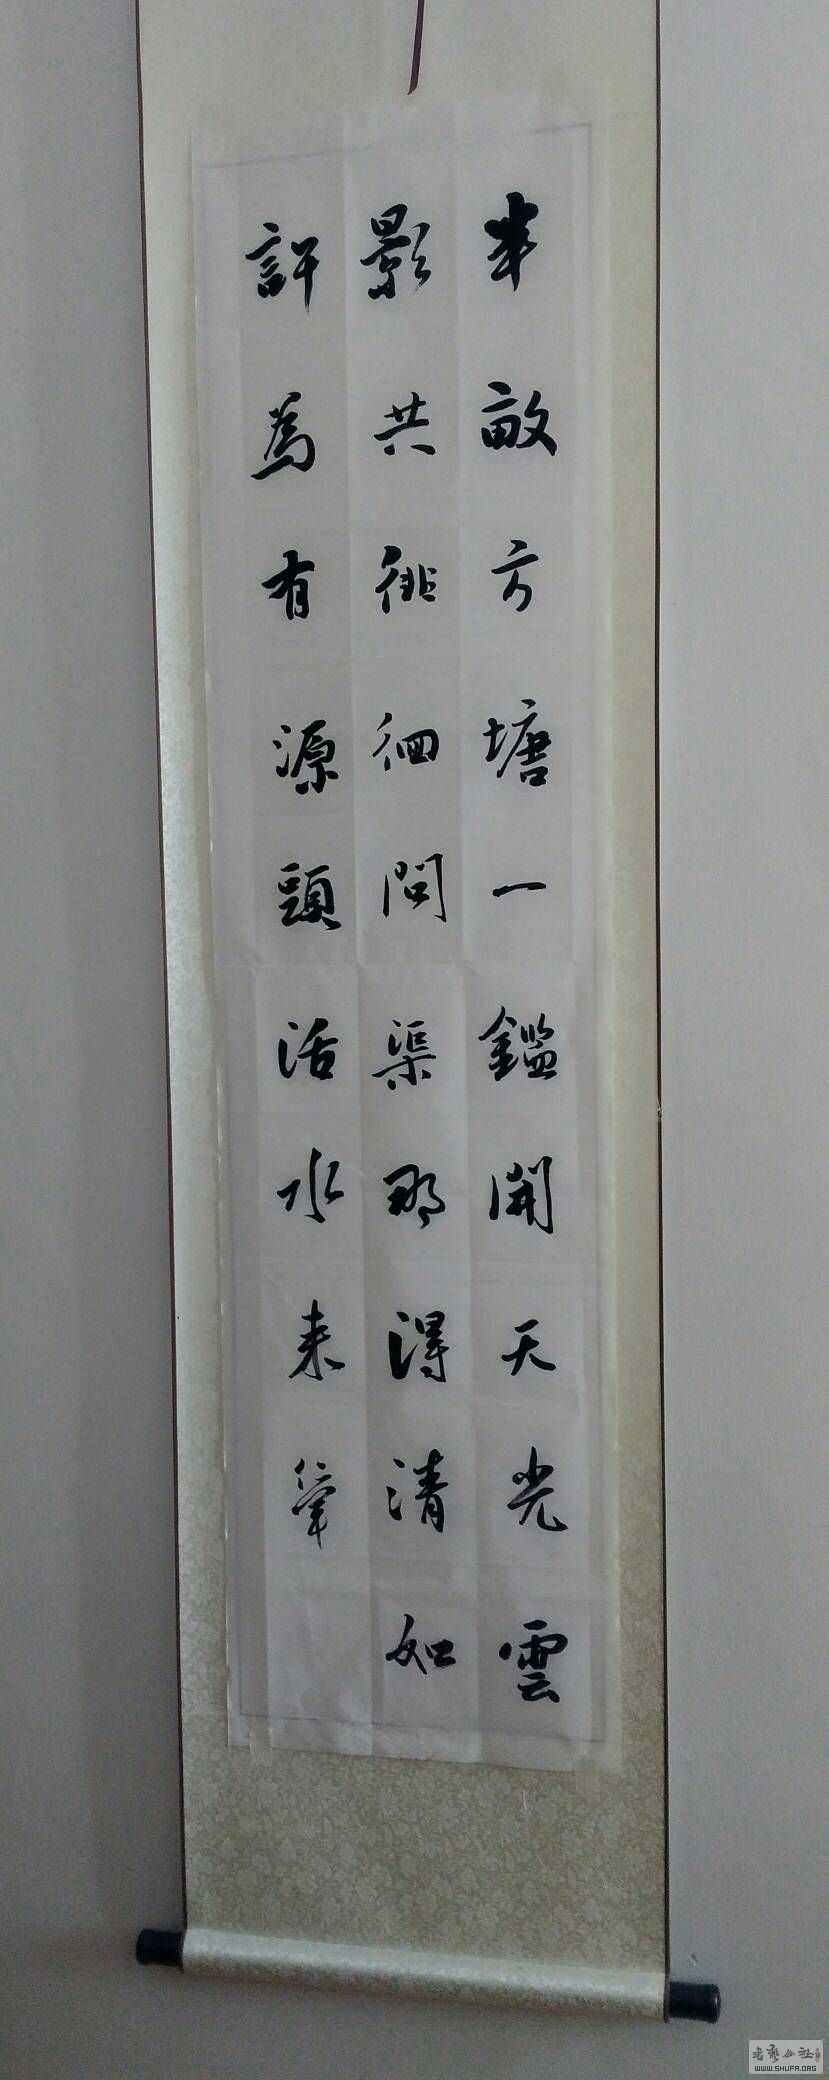 半畝方塘一鑑開天光雲
影共徘徊問渠那得清如
許為有源頭活水来
WWW.SHUFA.ORG